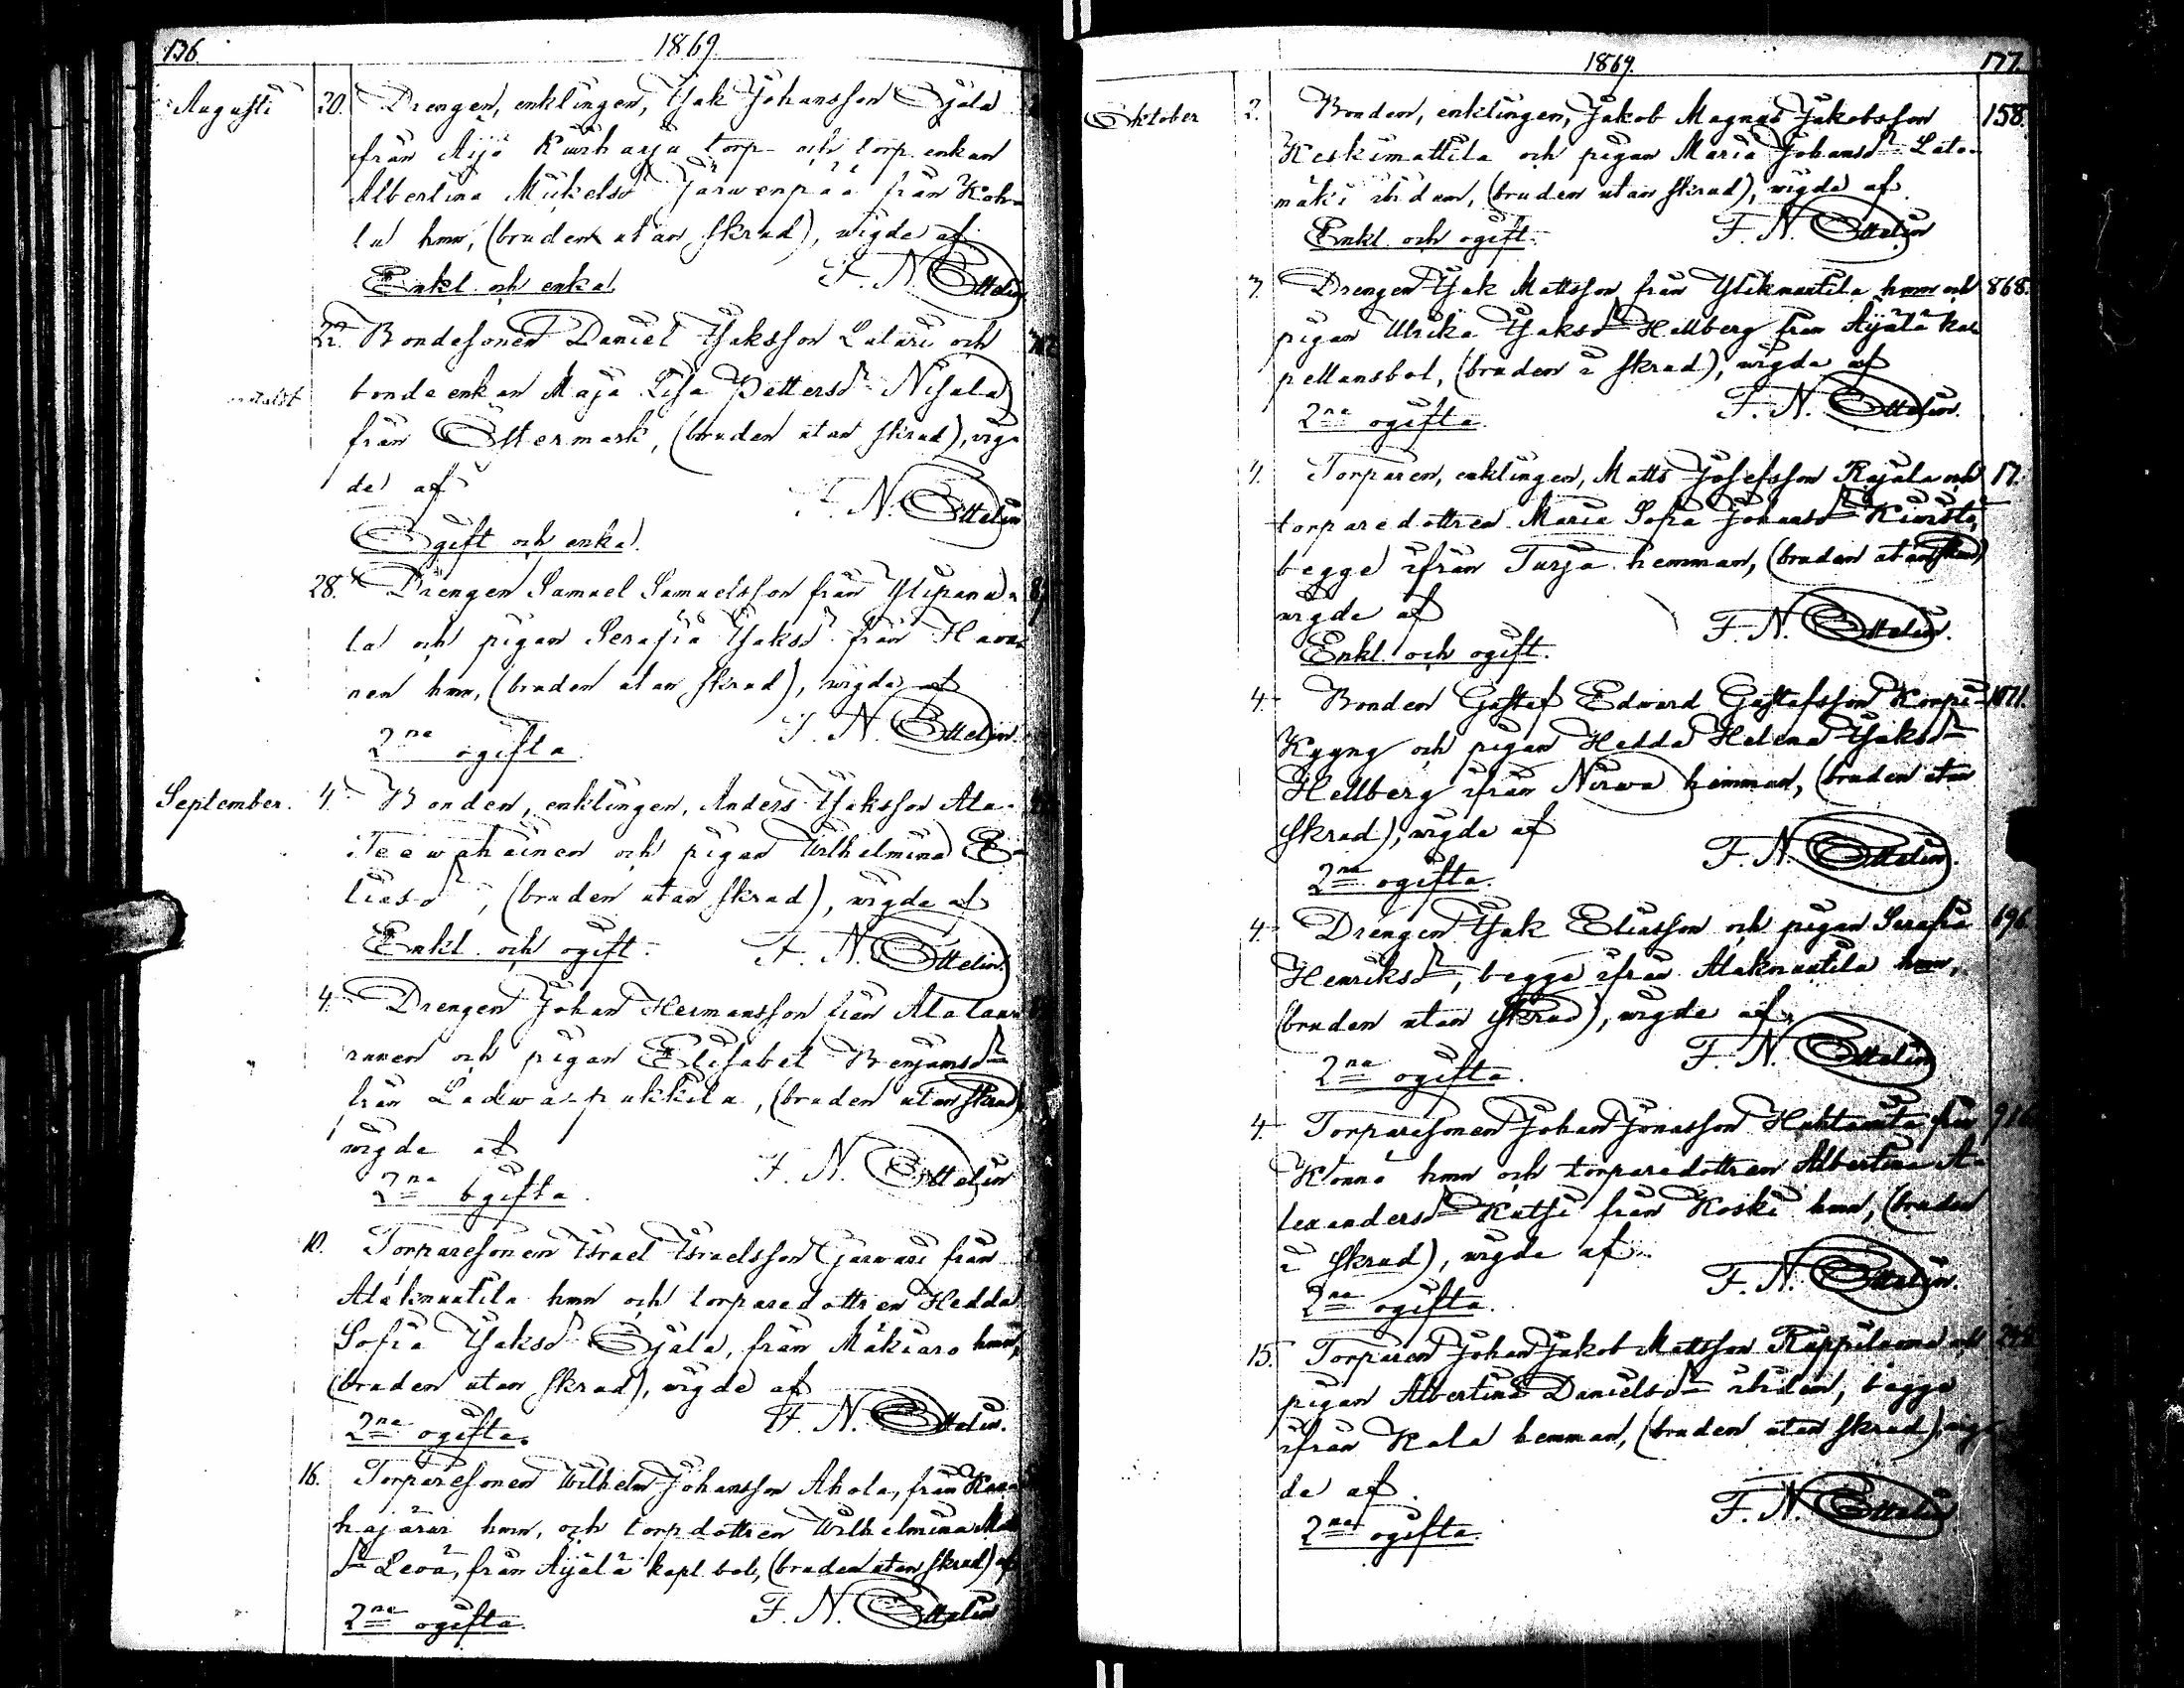 136.
1869.
Augusti
20. Drengen, enklingen, Isak Johansson Ojala
från Äijö Kurkharju torp och torp. enkan
Albertina Mickelsdr Järwenpää från Koh-
la hmn, (bruden utan skrud), wigde af
Enkl. och enka. F. N. Ottelin
22. Bondesonen Daniel Isaksson Latari och
bonde enkan Maja Lisa Pettersdr Nisula
från Östermark, (bruden utan skrud), wig-
de af F. N. Ottelin
Ogift och enka.
28. Drengen Samuel Samuelsson från Ylipanu-
la och pigan Serafia Isaksdr från
nen hmn, (bruden utan skrud), wigde af
2ne ogifta. F. N. Ottelin.
September. 4. Bonden, enklingen, Anders Isaksson Ala-
Teewahainen och pigan Wilhelmina E-
liasdr, (bruden utan skrud), wigde af
Enkl. och ogift. F. N. Ottelin.
4. Drengen Johan Hermansson från Alalau-
runen och pigan Elisabet Benjamsdr
från Ladwa-pukkila, (bruden utan skrud)
wigde af F. N. Ottelin
2ne ogifta.
10. Torparesonen Israel Israelsson Garwari från
Alaknuutila hmn och torparedottren Hedda
Sofia Isaksdr Ojala, från Mäkiaro hmn,
(bruden utan skrud), wigde af
2ne ogifta. F. N. Ottelin.
16. Torparesonen Wilhelm Johansson Ahola, från
hajärwi hmn, och torpdottren Wilhelmina
dr Levä, från Äijälä kapl. bol, (bruden utan skrud) af
2ne ogifta. F. N. Ottelin
1869.
177.
Oktober
2. Bonden, enklingen, Jakob Magnus Jakobsson 158.
Keskimattila och pigan Maria Johansdr Lato-
mäki ibidem, (bruden utan skrud), wigde af
Enkl. och ogift. F. N. Ottelin
3. Drengen Isak Mattsson från Yliknuutila hmn och 868.
pigan Ulrika Isaksdr Hellberg från Äijälä kap-
pellansbol, (bruden i skrud), wigde af
2ne ogifta. F. N. Ottelin.
4. Torparen, enklingen, Matts Josefsson Rajala och 17.
torparedottren Maria Sofia Johansdr Kiwistö,
begge ifrån Turja hemman, (bruden utan skrud)
wigde af F. N. Ottelin.
Enkl. och ogift.
4. Bonden Gustaf Edward Gustafsson Korpi- 1071.
Kyyny och pigan Hedda Helena Isaksdr
Hellberg ifrån Nirwa hemman, (bruden utan
skrud), wigde af F. N. Ottelin.
2ne ogifta.
4. Drengen Isak Eliasson och pigan Serafia 696.
Henriksdr, begge ifrån Alaknuutila hmn,
(bruden utan skrud), wigde af
2ne ogifta. F. N. Ottelin
4. Torparesonen Johan Jonasson Huhtamäki från
Könnö hmn och torparedottren Albertina A-
lexandersdr Kätsi från Koski hmn, (bruden
i skrud), wigde af
2ne ogifta. F. N. Ottelin.
15. Torparen Johan Jakob Mattsson och
pigan Albertina Danielsdr ibidem, begge
ifrån Kala hemman, (bruden utan skrud), wig-
de af.
2ne ogifta. F. N. Ottelin